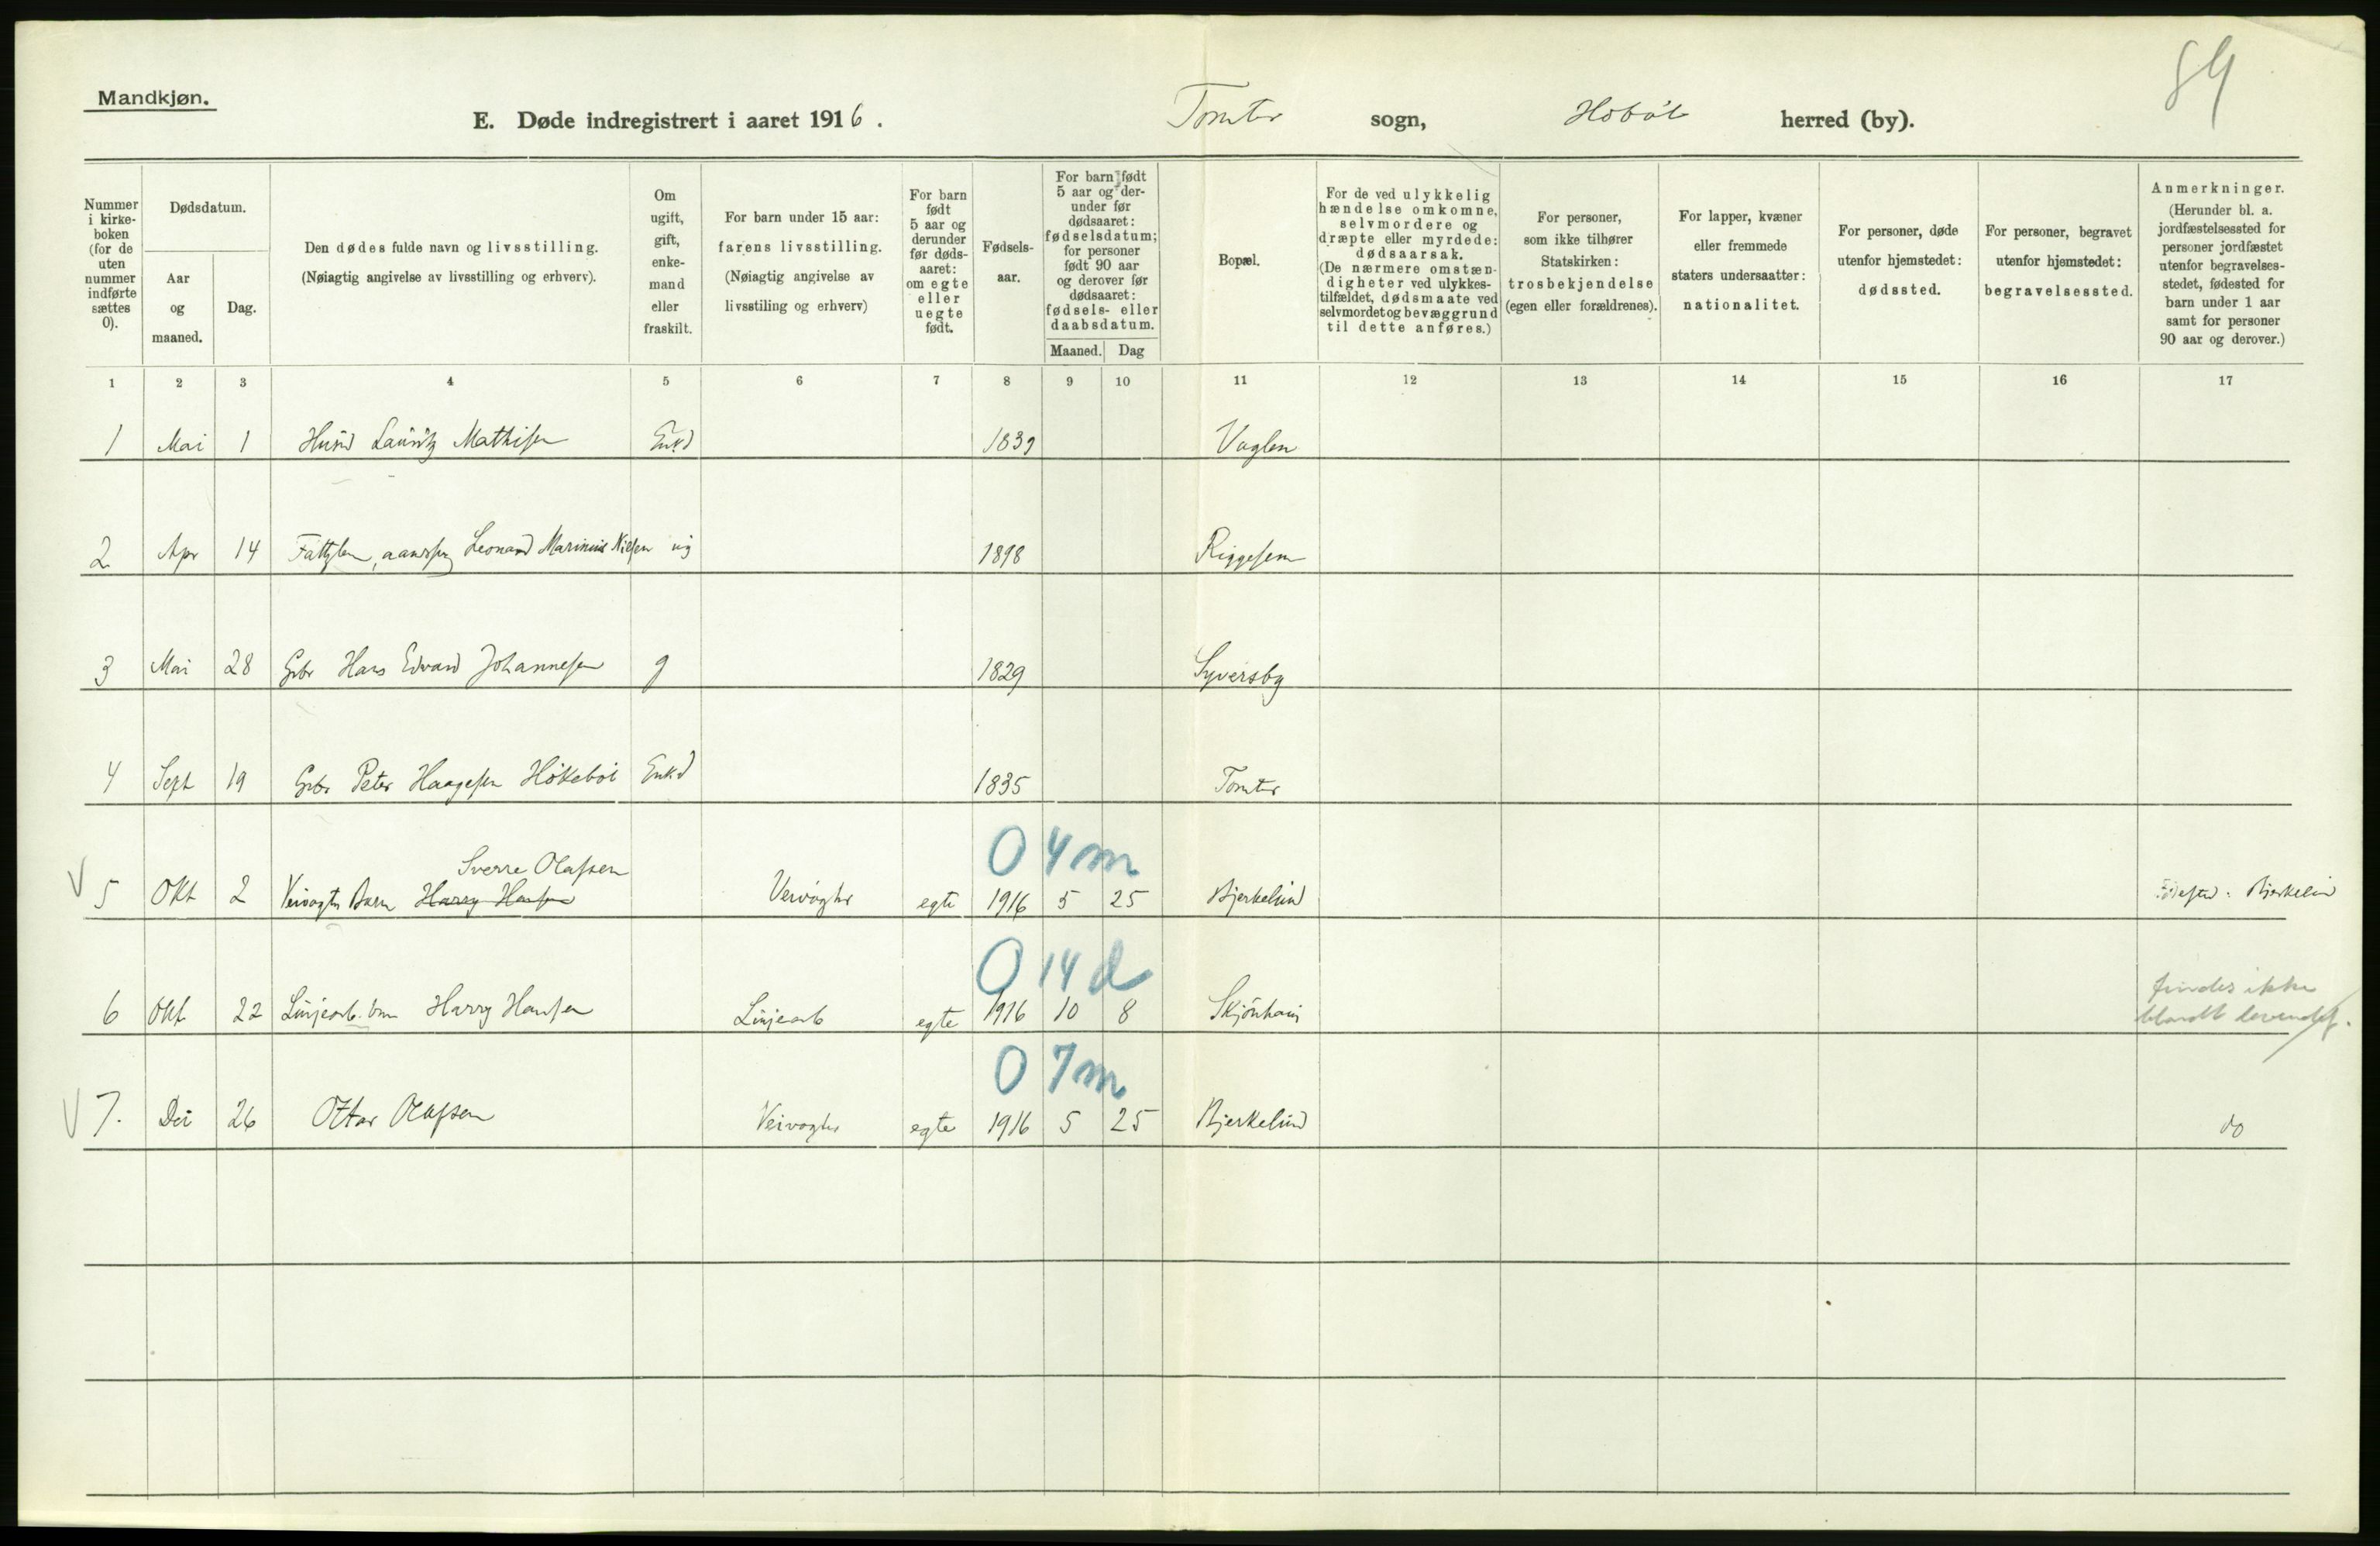 84
Mandkjøn.
E. Døde indregistrert i aaret 1916. Tomter sogn, Hobøl herred (by).
Nummer i kirke-boken (for de uten nummer indførte sættes 0).
Dødsdatum.
Aar og maaned.
Dag.
Den dødes fulde navn og livsstilling.
(Nøiagtig angivelse av livsstilling og erhverv).
Om ugift, gift, enke-mand eller fraskilt.
For barn under 15 aar:
farens livsstilling.
(Nøiagtig angivelse av livsstiling og erhverv)
For barn født 5 aar og derunder før døds-aaret: om egte eller uegte født.
Fødsels-aar.
For barn født 5 aar og der-under før dødsaaret: fødselsdatum; for personer født 90 aar og derover før dødsaaret: fødsels- eller daabsdatum.
Maaned. Dag
Bopæl.
For de ved ulykkelig hændelse omkomne, selvmordere og dræpte eller myrdede: dødsaarsak.
(De nærmere omstæn-digheter ved ulykkes-tilfældet, dødsmaate ved selvmordet og bevæggrund til dette anføres.)
For personer, som ikke tilhører Statskirken: trosbekjendelse (egen eller forældrenes).
For lapper, kvæner eller fremmede staters undersaatter: nationalitet.
For personer, døde utenfor hjemstedet: dødssted.
For personer, begravet utenfor hjemstedet: begravelsessted.
Anmerkninger.
(Herunder bl. a. jordfæstelsessted for personer jordfæstet utenfor begravelses-stedet, fødested for barn under 1 aar samt for personer 90 aar og derover.)
1 2 3 4 5 6 7 8 9 10 11 12 13 14 15 16 17
1 Mai 1 Lauritz Mathisen Enkd 1839 Vaglen
2 Apr 14 Leonard Marinius Nielsen ug 1898 Riggesem
3 Mai 28 Gbr Hans Edvard Johannesen g 1829 Syversby
4 Sept 19 Gbr Peter Haagesen Høkebøl Enkd 1835 Tomter
0 4 m
Sverre Olafsen
V 5 Okt 2 Veivogters Barn Harry Hansen Veivogter egte 1916 5 25 Bjerkelund Fødested: Bjerkelun
0 14 d
findes ikke
6 Okt 22 Linjearb. barn Harry Hansen Linjearb egte 1916 10 8 Skjönhaug blandt levendef.
0 7 m
V 7. De 26 Ottar Olafsen Veivogter egte 1916 5 25 Bjerkelund do